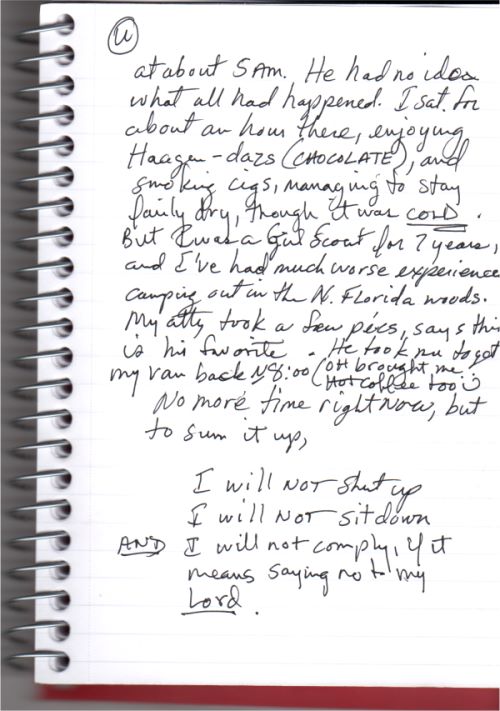 4
at about 5 AM. He had no idea
what all had happened. I sat for
about an hour there, enjoying
Haagen-dazs (CHOCOLATE), and
smoking cigs, managing to stay
fairly dry, though it was COLD.
But I was a Girl Scout for 7 years,
and I've had much worse experience
camping out in the N. Florida woods.
My atty took a few pics, says this
is his favorite. He took me to get
my van back ~8:00 (oh brought me
Hot coffee too
No more time right now, but
to sum it up,
I will NOT shut up
I will NOT sit down
AND I will not comply, if it
means saying no to my
Lord.